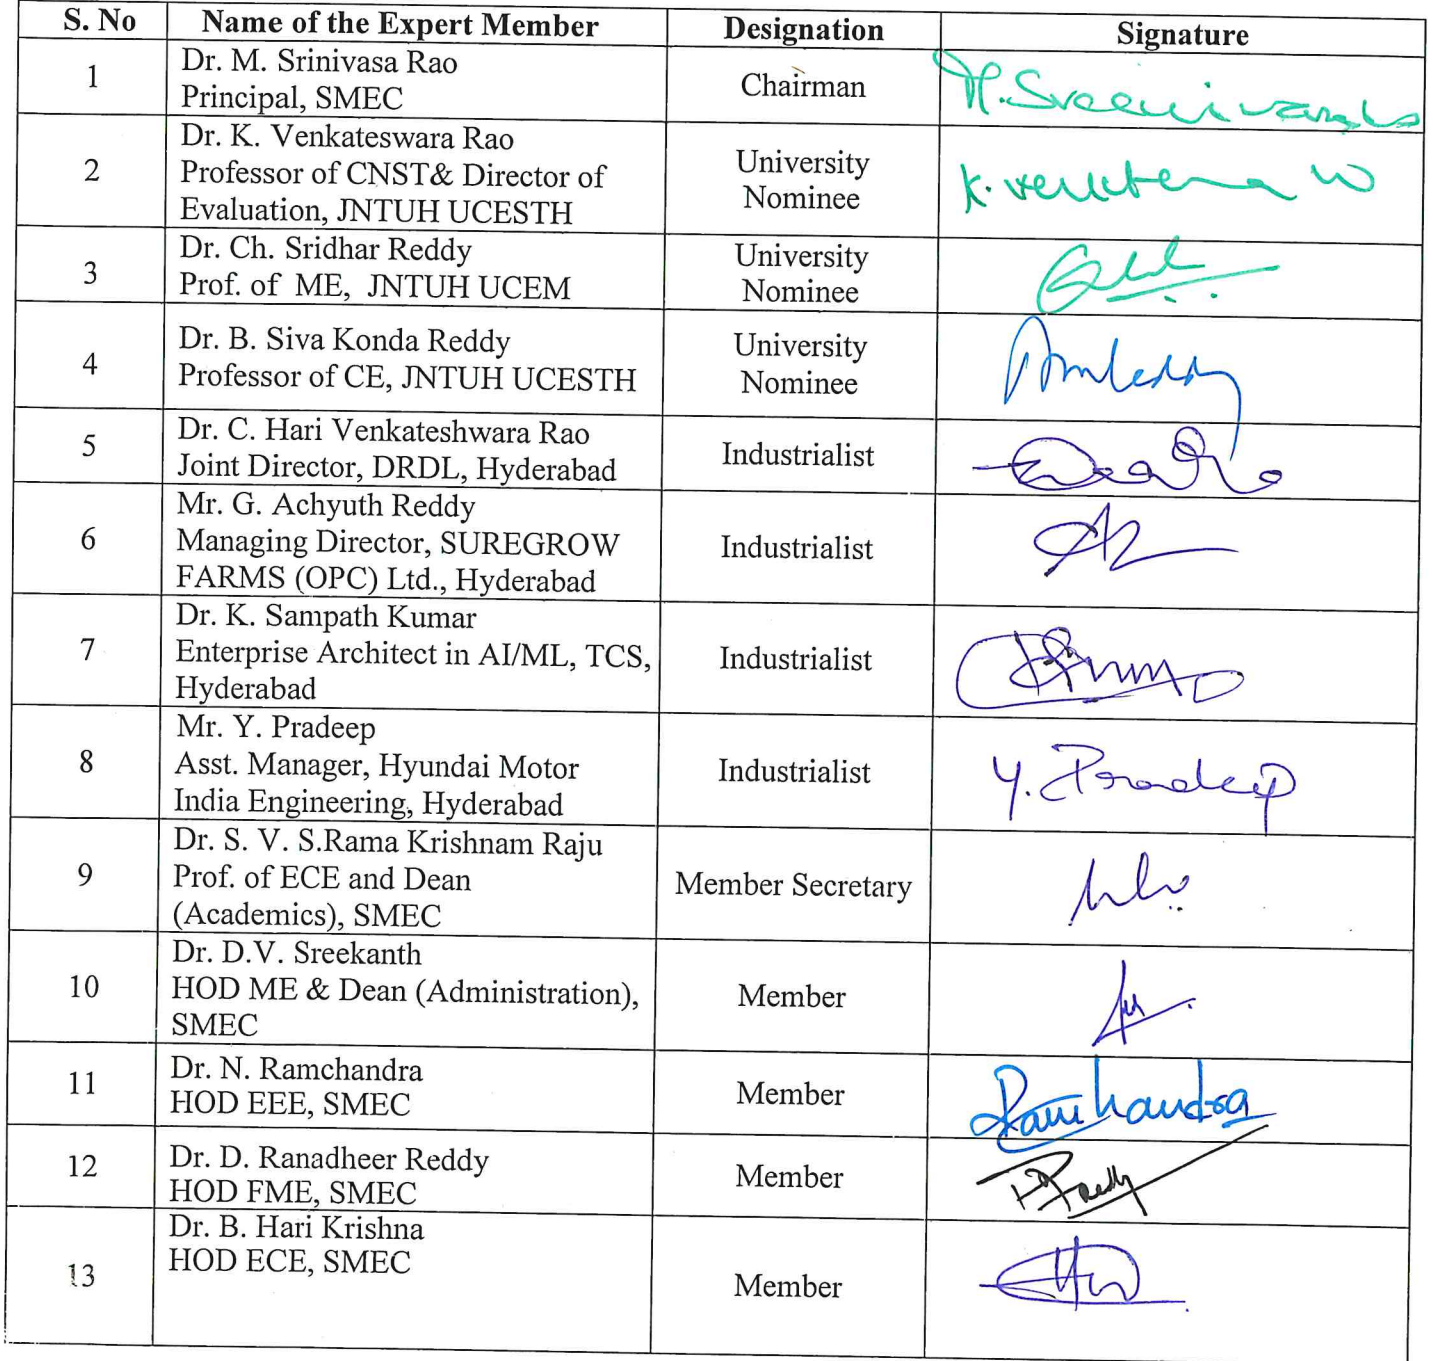 S. No Name of the Expert Member Designation Signature
1 Dr. M. Srinivasa Rao
Principal, SMEC Chairman M. Sreenivasa Rao
2 Dr. K. Venkateswara Rao
Professor of CNST& Director of
Evaluation, JNTUH UCESTH University
Nominee
3 Dr. Ch. Sridhar Reddy
Prof. of ME, JNTUH UCEM University
Nominee
4 Dr. B. Siva Konda Reddy
Professor of CE, JNTUH UCESTH University
Nominee
5 Dr. C. Hari Venkateshwara Rao
Joint Director, DRDL, Hyderabad Industrialist
6 Mr. G. Achyuth Reddy
Managing Director, SUREGROW
FARMS (OPC) Ltd., Hyderabad Industrialist
7 Dr. K. Sampath Kumar
Enterprise Architect in AI/ML, TCS,
Hyderabad Industrialist
8 Mr. Y. Pradeep
Asst. Manager, Hyundai Motor
India Engineering, Hyderabad Industrialist Y. Pradeep
9 Dr. S. V. S.Rama Krishnam Raju
Prof. of ECE and Dean
(Academics), SMEC Member Secretary
10 Dr. D.V. Sreekanth
HOD ME & Dean (Administration),
SMEC Member
11 Dr. N. Ramchandra
HOD EEE, SMEC Member Ramchandra
12 Dr. D. Ranadheer Reddy
HOD FME, SMEC Member
13 Dr. B. Hari Krishna
HOD ECE, SMEC Member